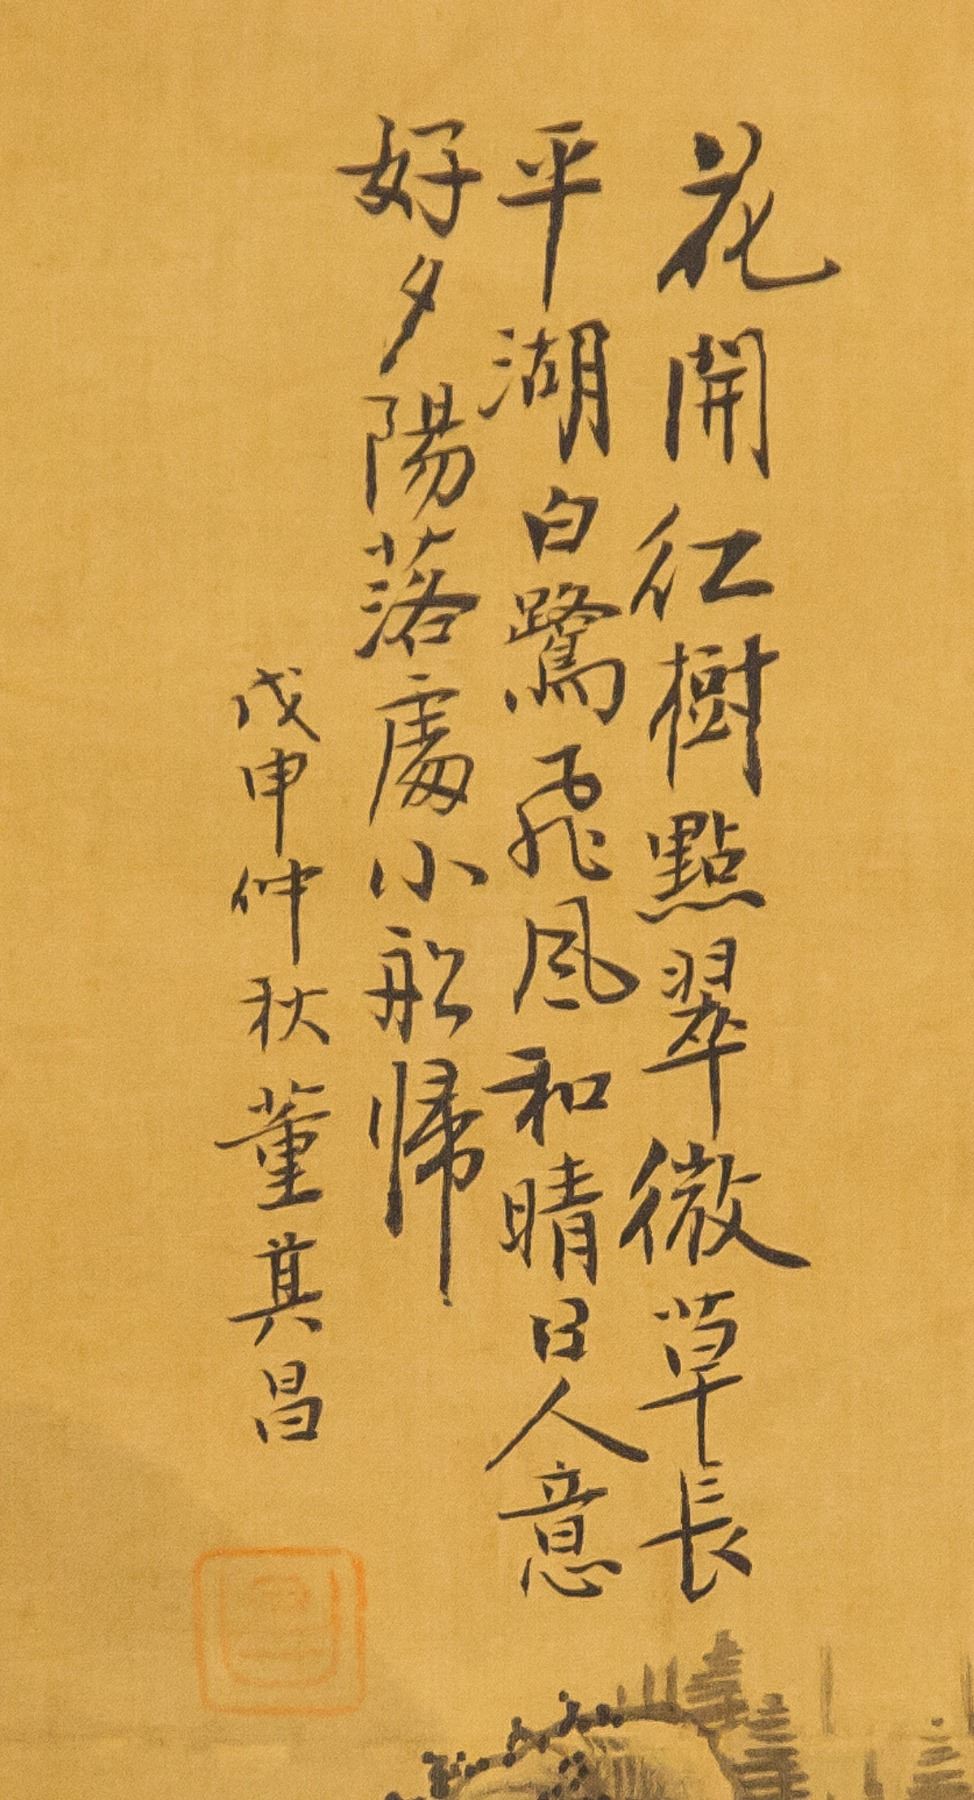 花開紅樹點翠微草長
平湖白鷺飛風和晴日人意
好夕陽落處小船帰
戊申仲秋董其昌